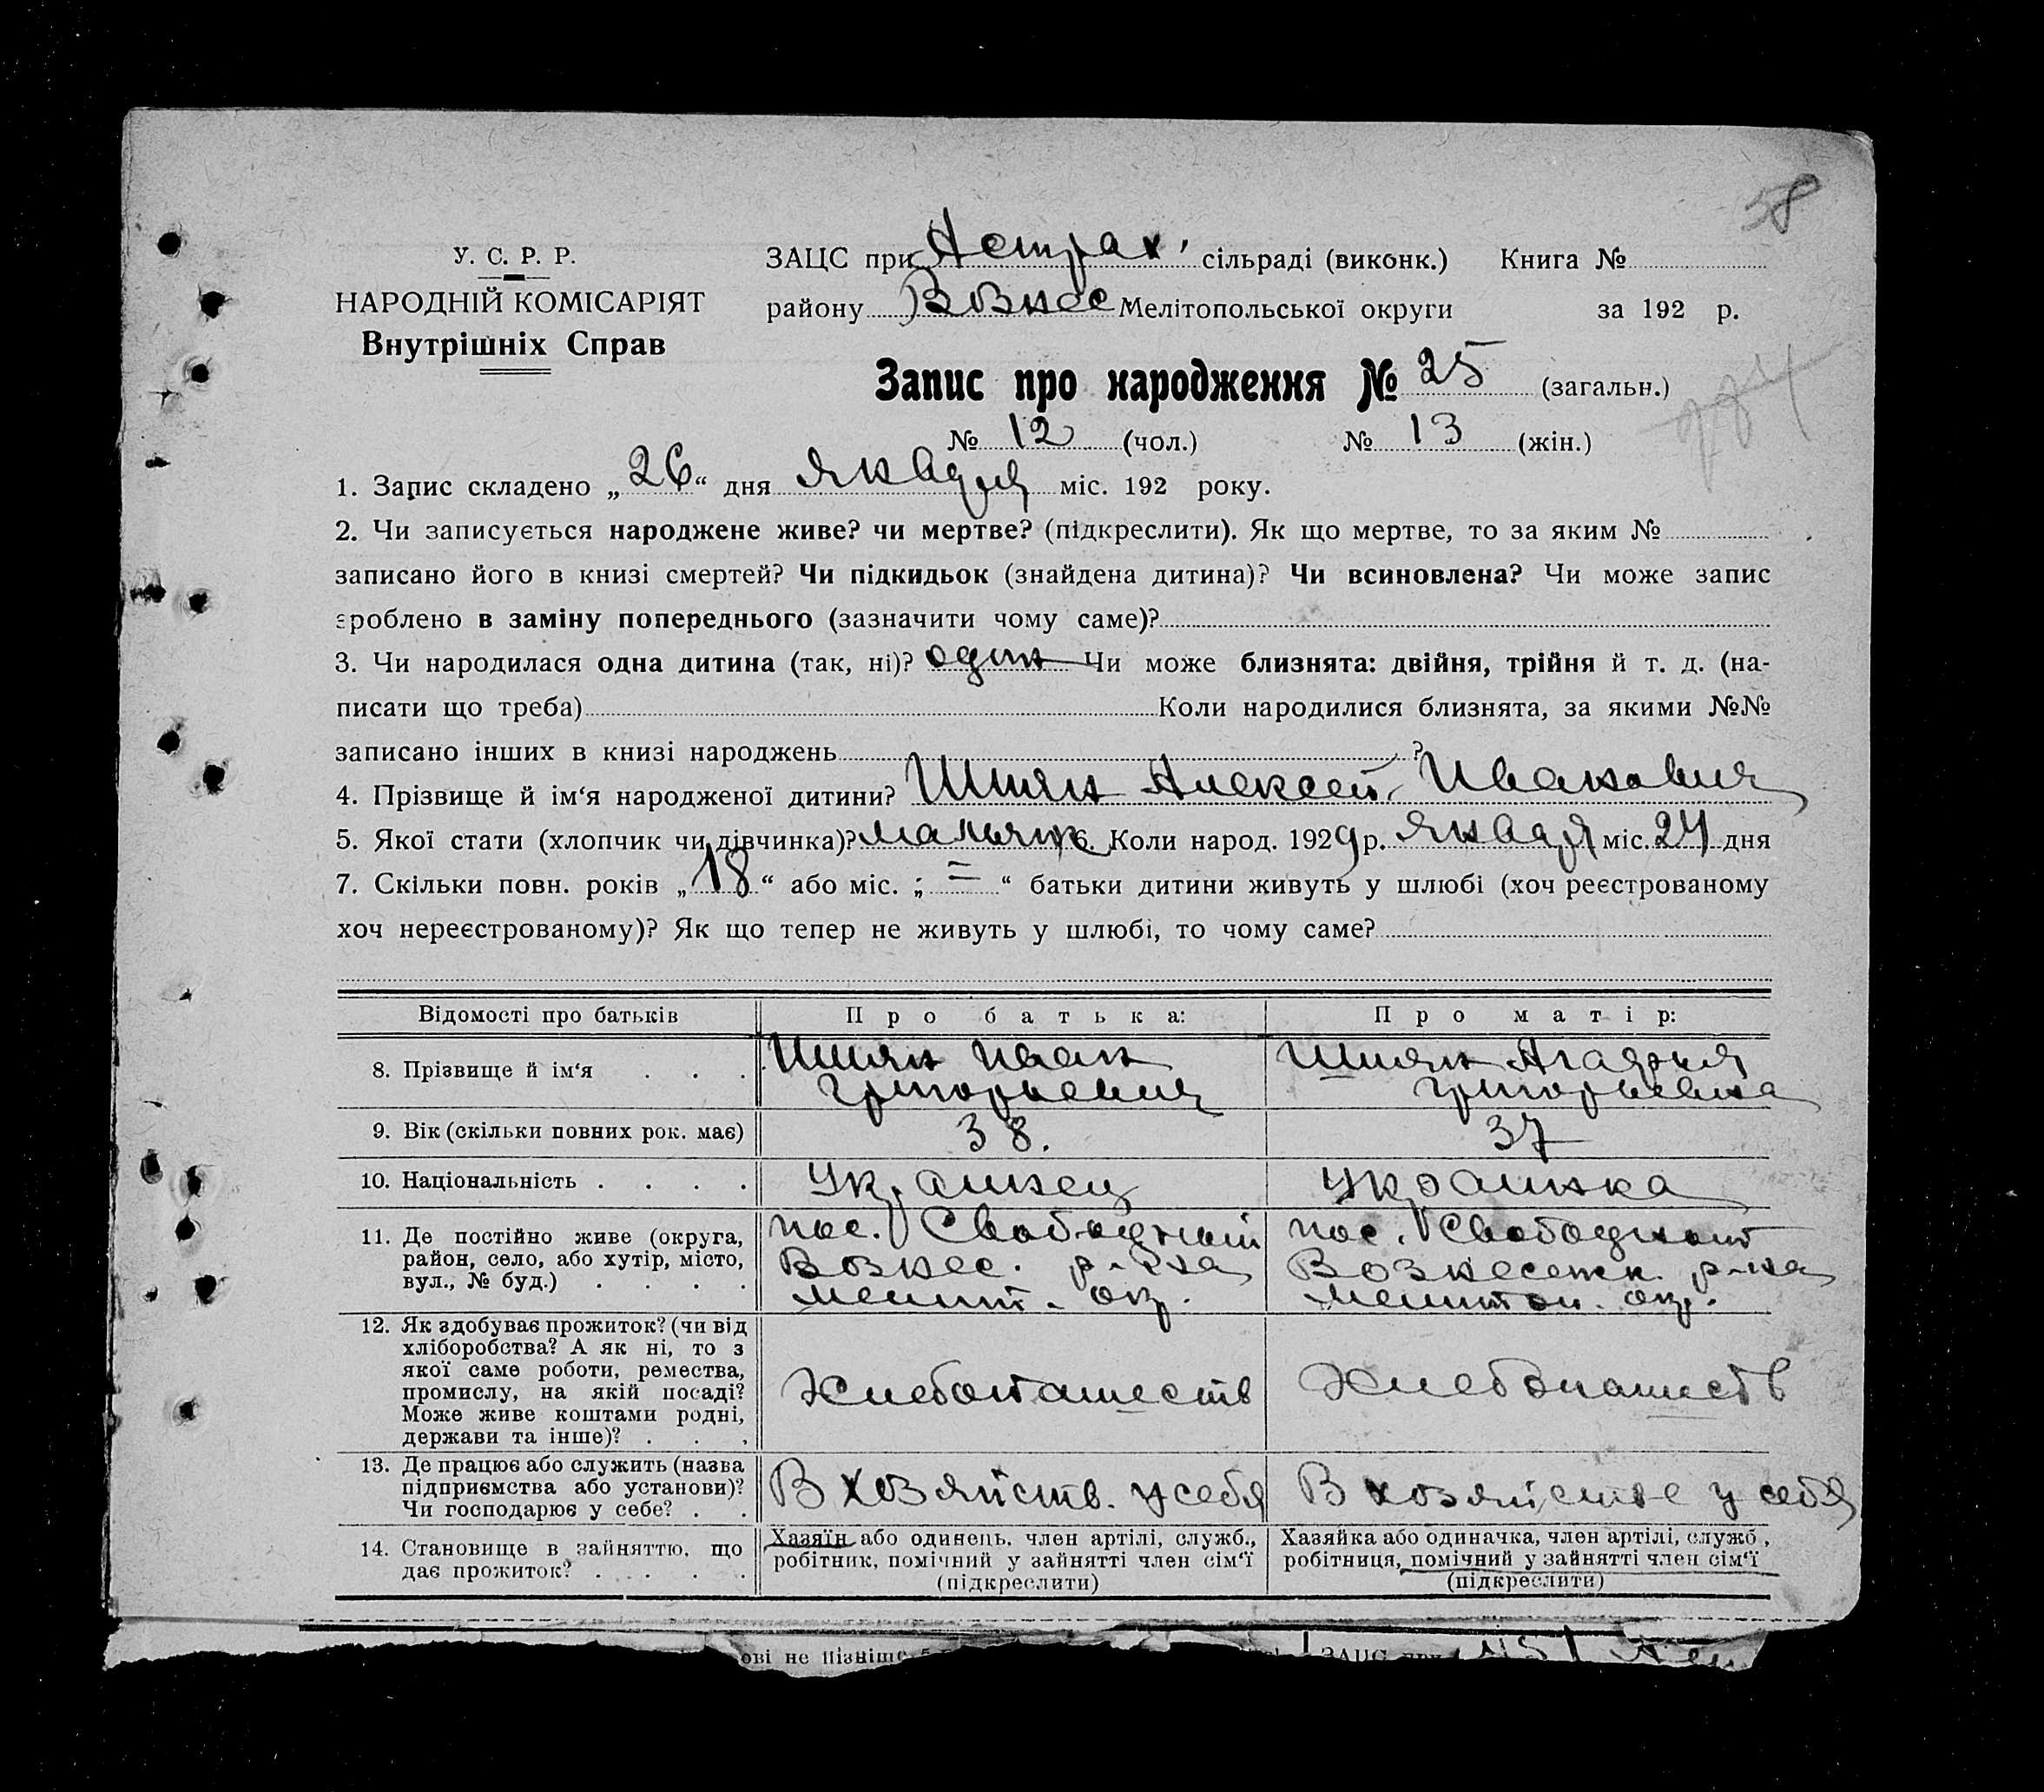 58
У. С. Р. Р.
НАРОДНІЙ КОМІСАРІЯТ
Внутрішніх Справ
ЗАЦС при Астрах. сільраді (виконк.) Книга №
району Вознес Мелітопольської округи за 192 р.
Запис про народження № 25 (загальн.)
№ 12 (чол.) № 13 (жін.)
1. Запис складено „26“ дня января міс. 192 року.
2. Чи записується народжене живе? чи мертве? (підкреслити). Як що мертве, то за яким №
записано його в книзі смертей? Чи підкидьок (знайдена дитина)? Чи всиновлена? Чи може запис
зроблено в заміну попереднього (зазначити чому саме)?
3. Чи народилася одна дитина (так, ні)? один Чи може близнята: двійня, трійня й т. д. (на-
писати що треба) Коли народилися близнята, за якими №№
записано інших в книзі народжень ?
4. Прізвище й ім‘я народженої дитини? Шиян Алексей Иванович
5. Якої стати (хлопчик чи дівчинка)? мальчик 6. Коли народ. 1929 р. января міс. 24 дня
7. Скільки повн. років „18“ або міс. „=“ батьки дитини живуть у шлюбі (хоч реєстрованому
хоч нереєстрованому)? Як що тепер не живуть у шлюбі, то чому саме?
Відомості про батьків Про батька: Про матір:
8. Прізвище й ім‘я . . . Шиян Иван Григорьевич Шиян Агафия Григорьевна
9. Вік (скільки повних рок. має) 38. 37
10. Національність . . . . Украинец Украинка
11. Де постійно живе (округа, район, село, або хутір, місто, вул., № буд.) . . . . пос. Свободный Вознес. р-на Мелит. окр. пос. Свободный Вознесенк. р-на Мелитоп. окр.
12. Як здобуває прожиток? (чи від хліборобства? А як ні, то з якої саме роботи, ремества, промислу, на якій посаді? Може живе коштами родні, держави та інше)? . . . Хлебопашеств Хлебопашеств
13. Де працює або служить (назва підприємства або установи)? Чи господарює у себе? . . В хозяйств. у себя В хозяйстве у себя
14. Становище в зайняттю, що дає прожиток? . . . . Хазяїн або одинець, член артілі, служб., робітник, помічний у зайнятті член сім‘ї (підкреслити) Хазяйка або одиначка, член артілі, служб., робітниця, помічний у зайнятті член сім‘ї (підкреслити)
ові не пізніше
ЗАЦС при